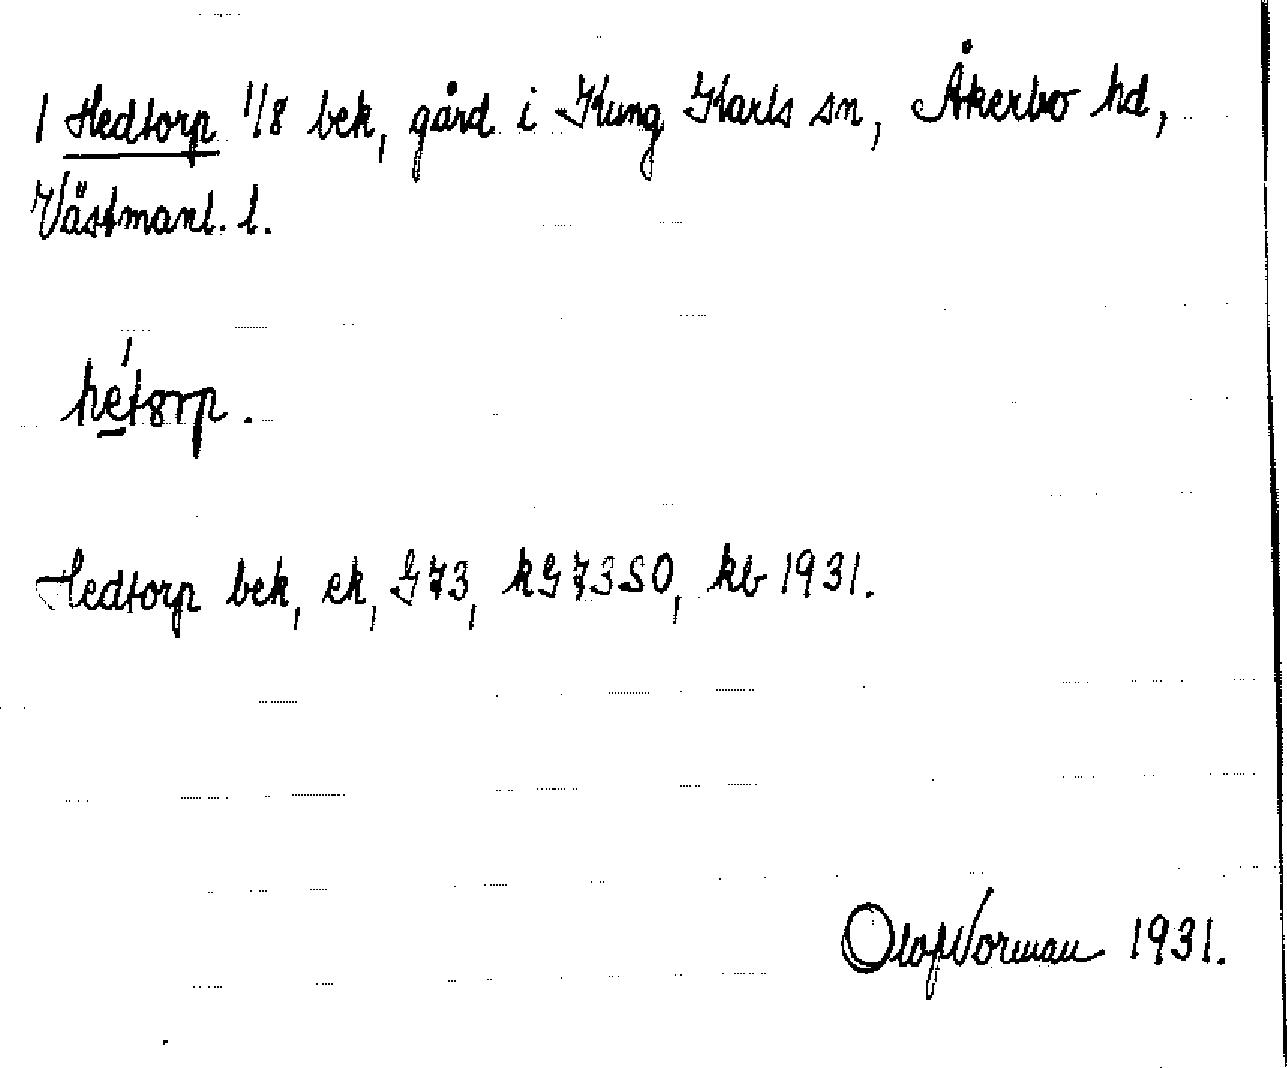 1 Hedtorp 1/8 bek, gård i Kung Karls sn, Åkerbo hd,
Västmanl. l.
hétorp.
Hedtorp bek, ek, G73, kG73SO, kb 1931.
Olof Norman 1931.